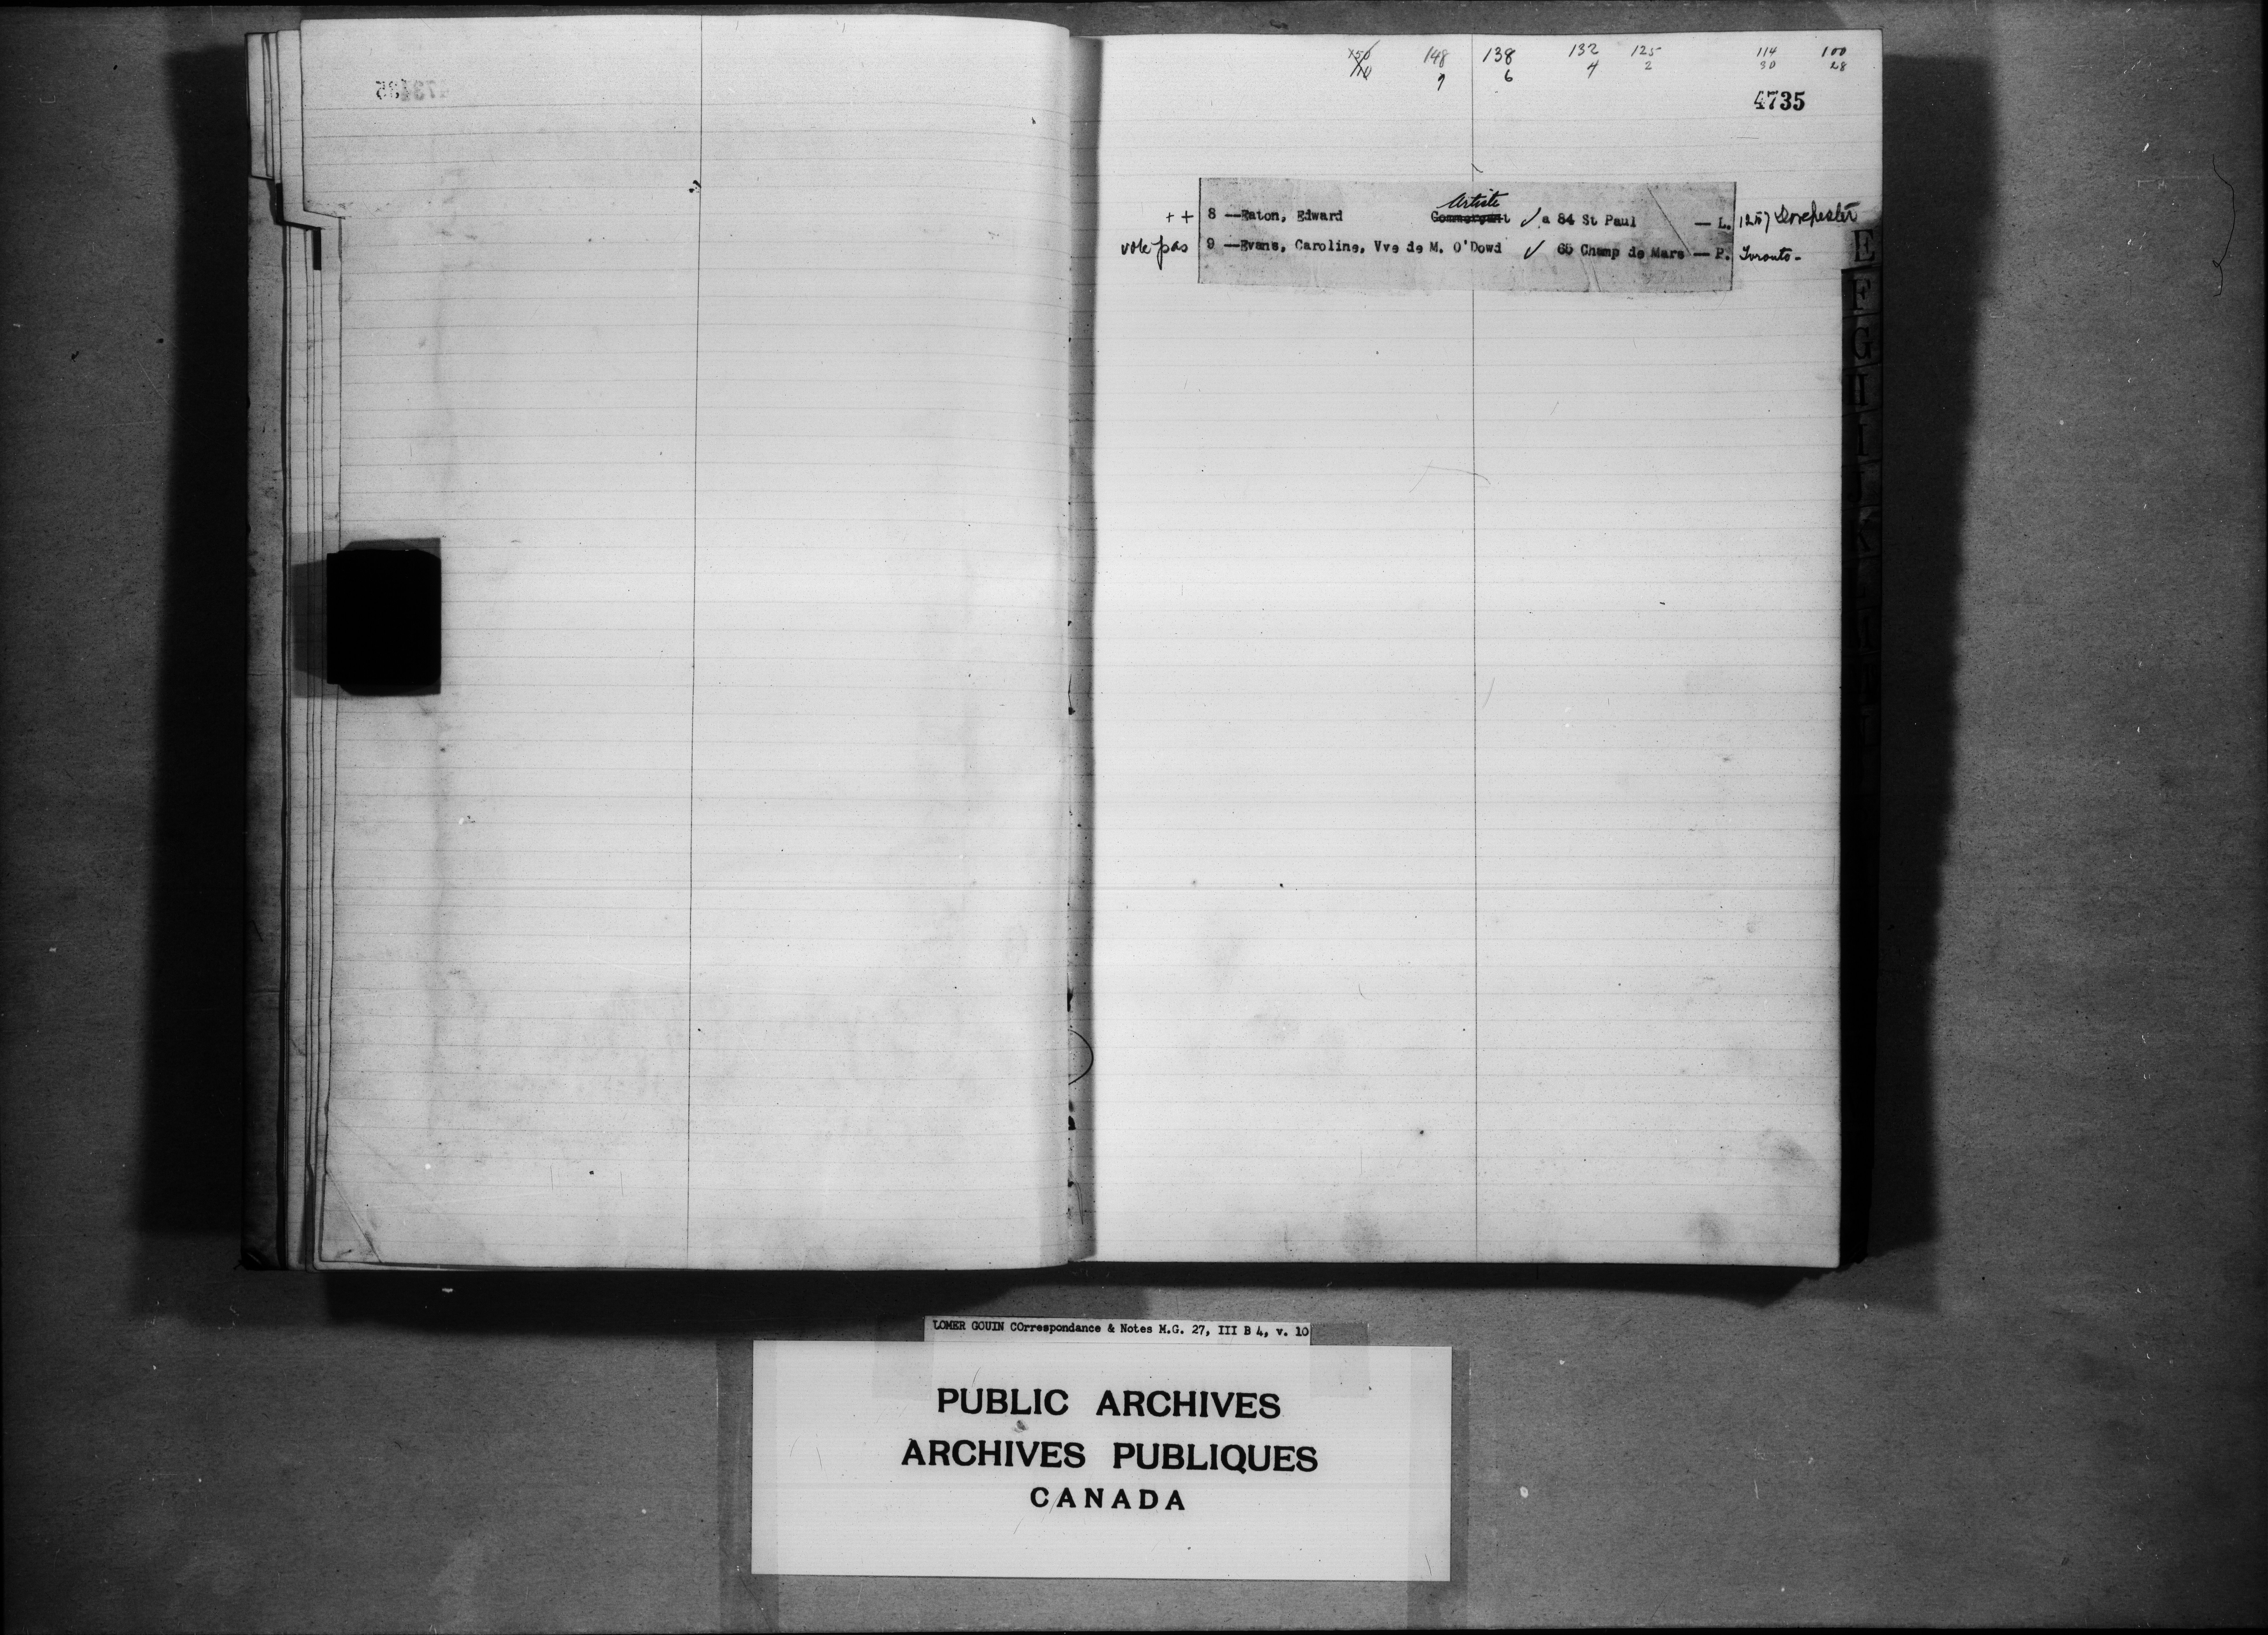 148 138 132 125 114 100
9 6 4 2 30 28
4735
Artiste
+ + 8 —Eaton, Edward Commerçant ✓ a 84 St Paul — L. 1257 Dorchester
vote pas 9 —Evans, Caroline, Vve de M. O'Dowd ✓ 65 Champ de Mars — P. Toronto -
E
F
G
H
I
J
K
LOMER GOUIN COrrespondance & Notes M.G. 27, III B 4, v. 10
PUBLIC ARCHIVES
ARCHIVES PUBLIQUES
CANADA